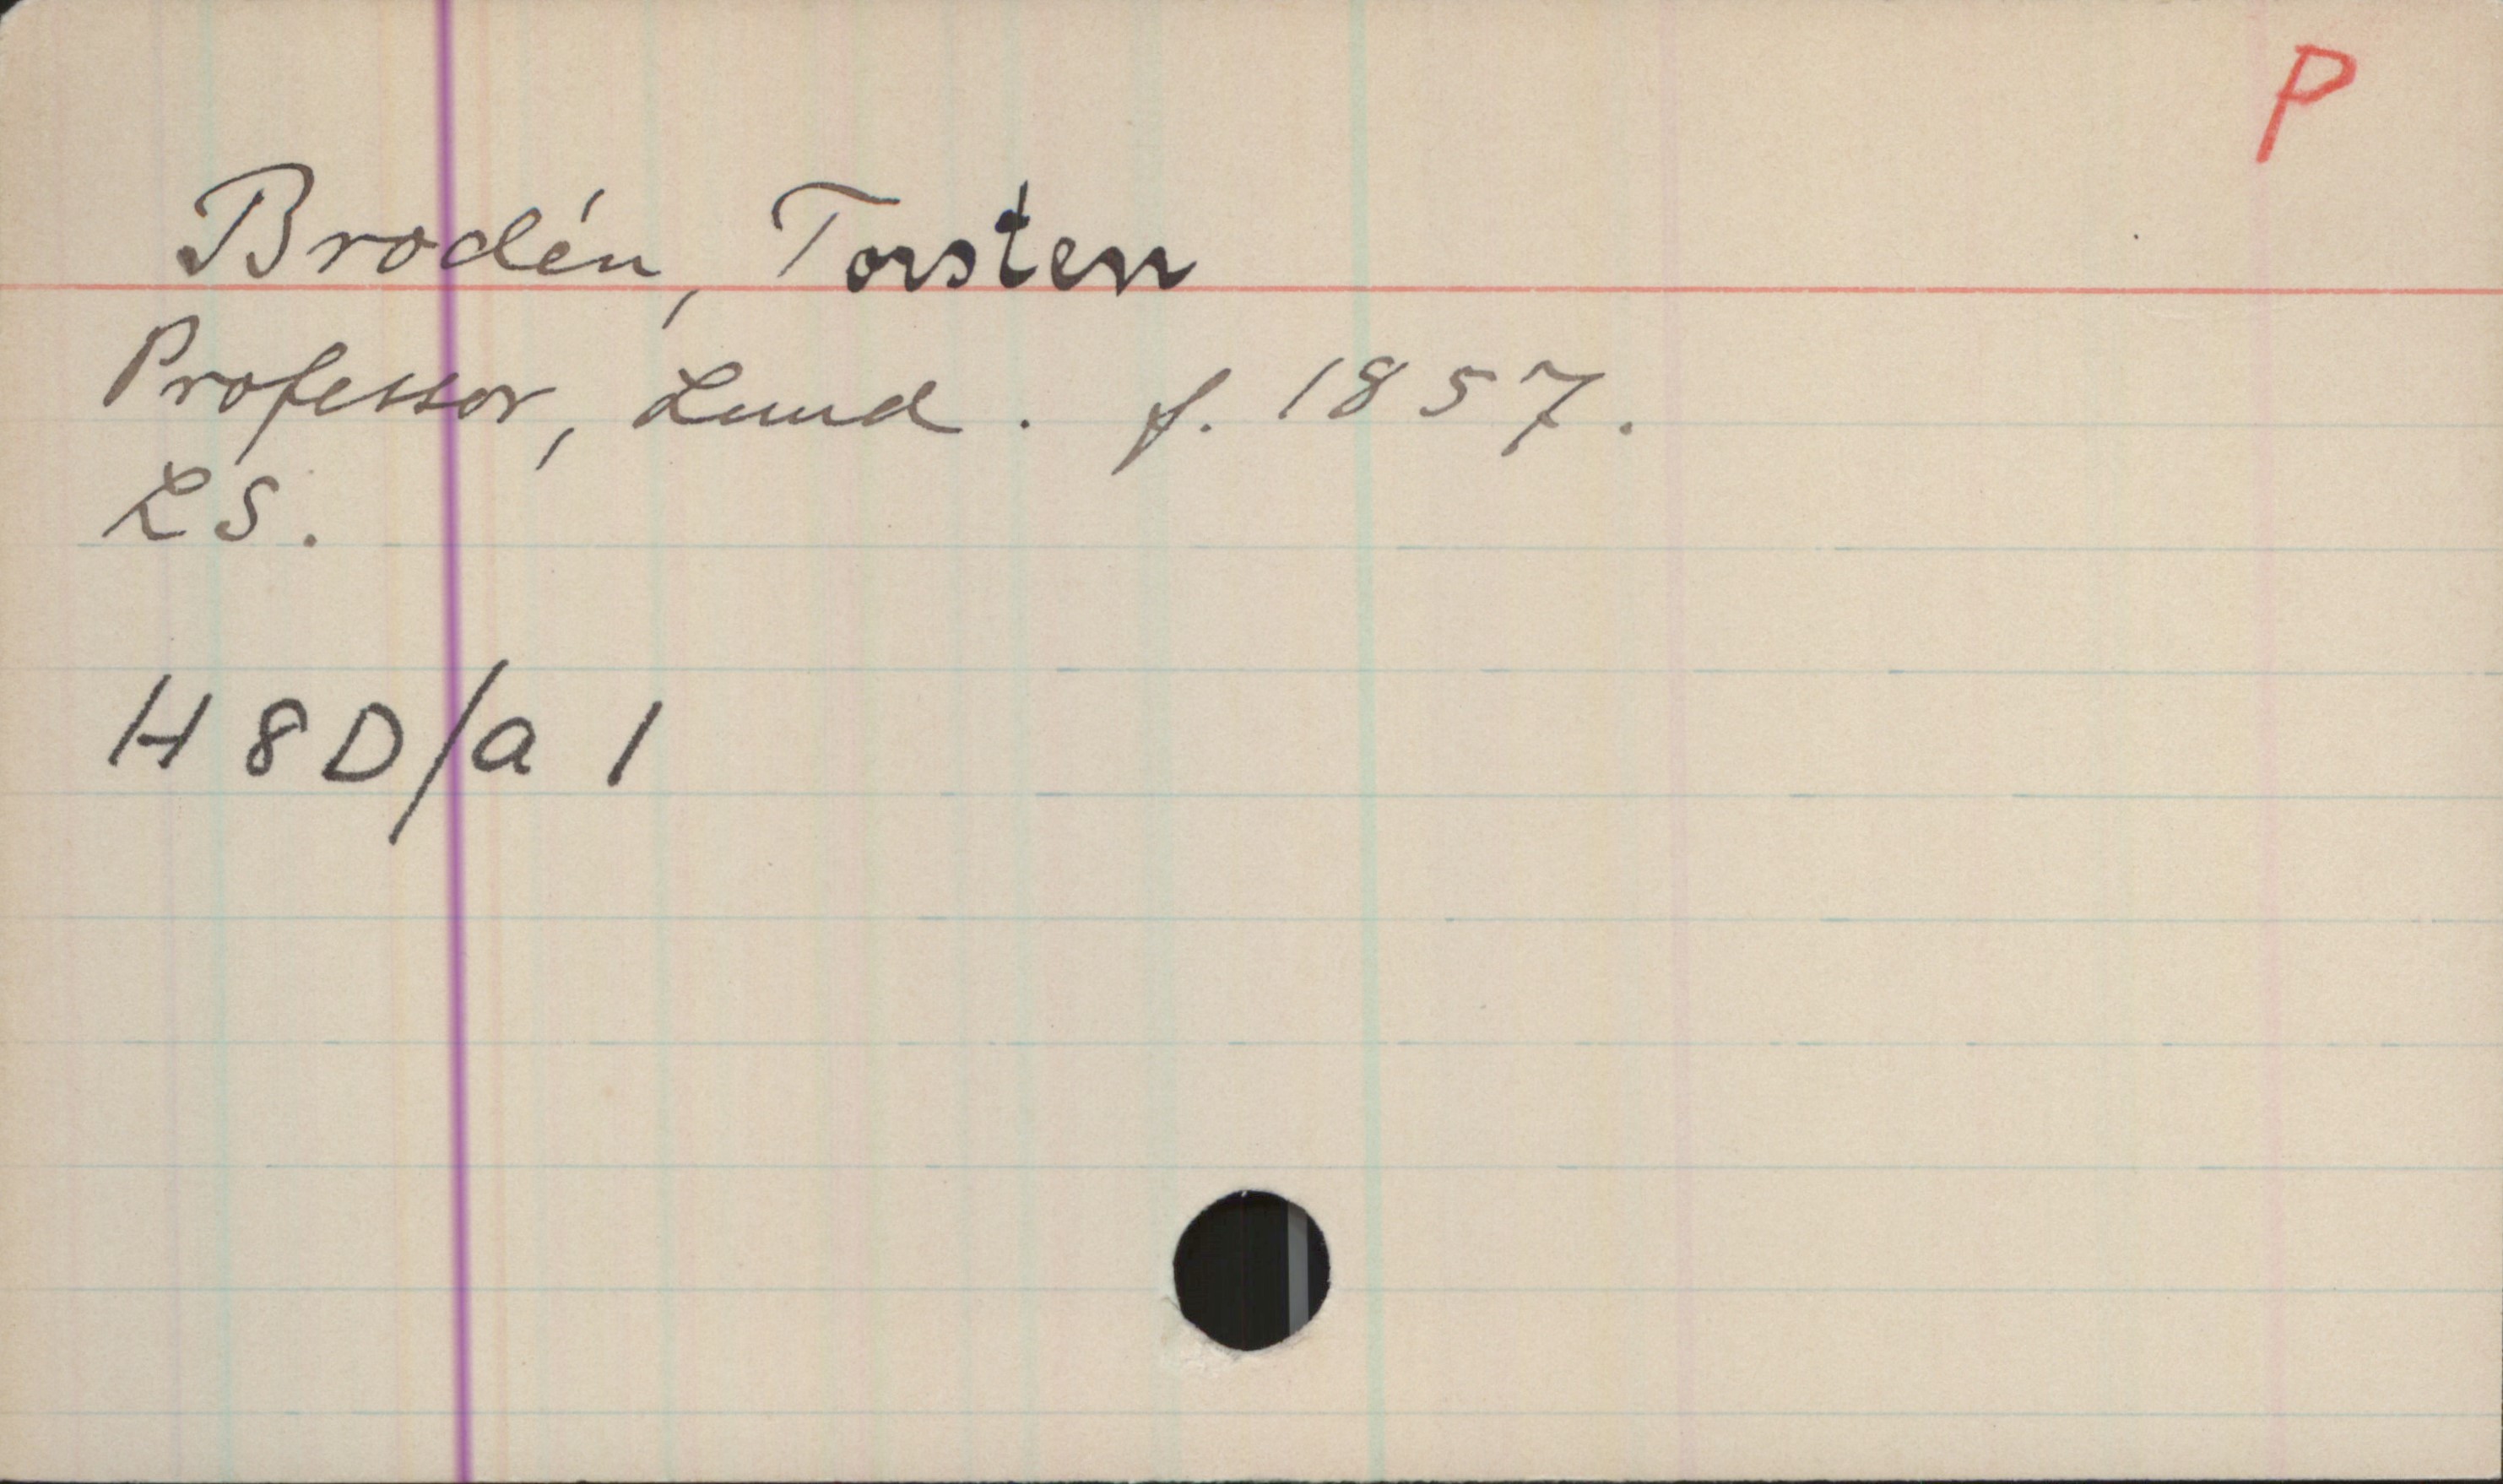 P
Brodén, Torsten
Professor, Lund. f. 1857.
LS.
H 8 D/a 1